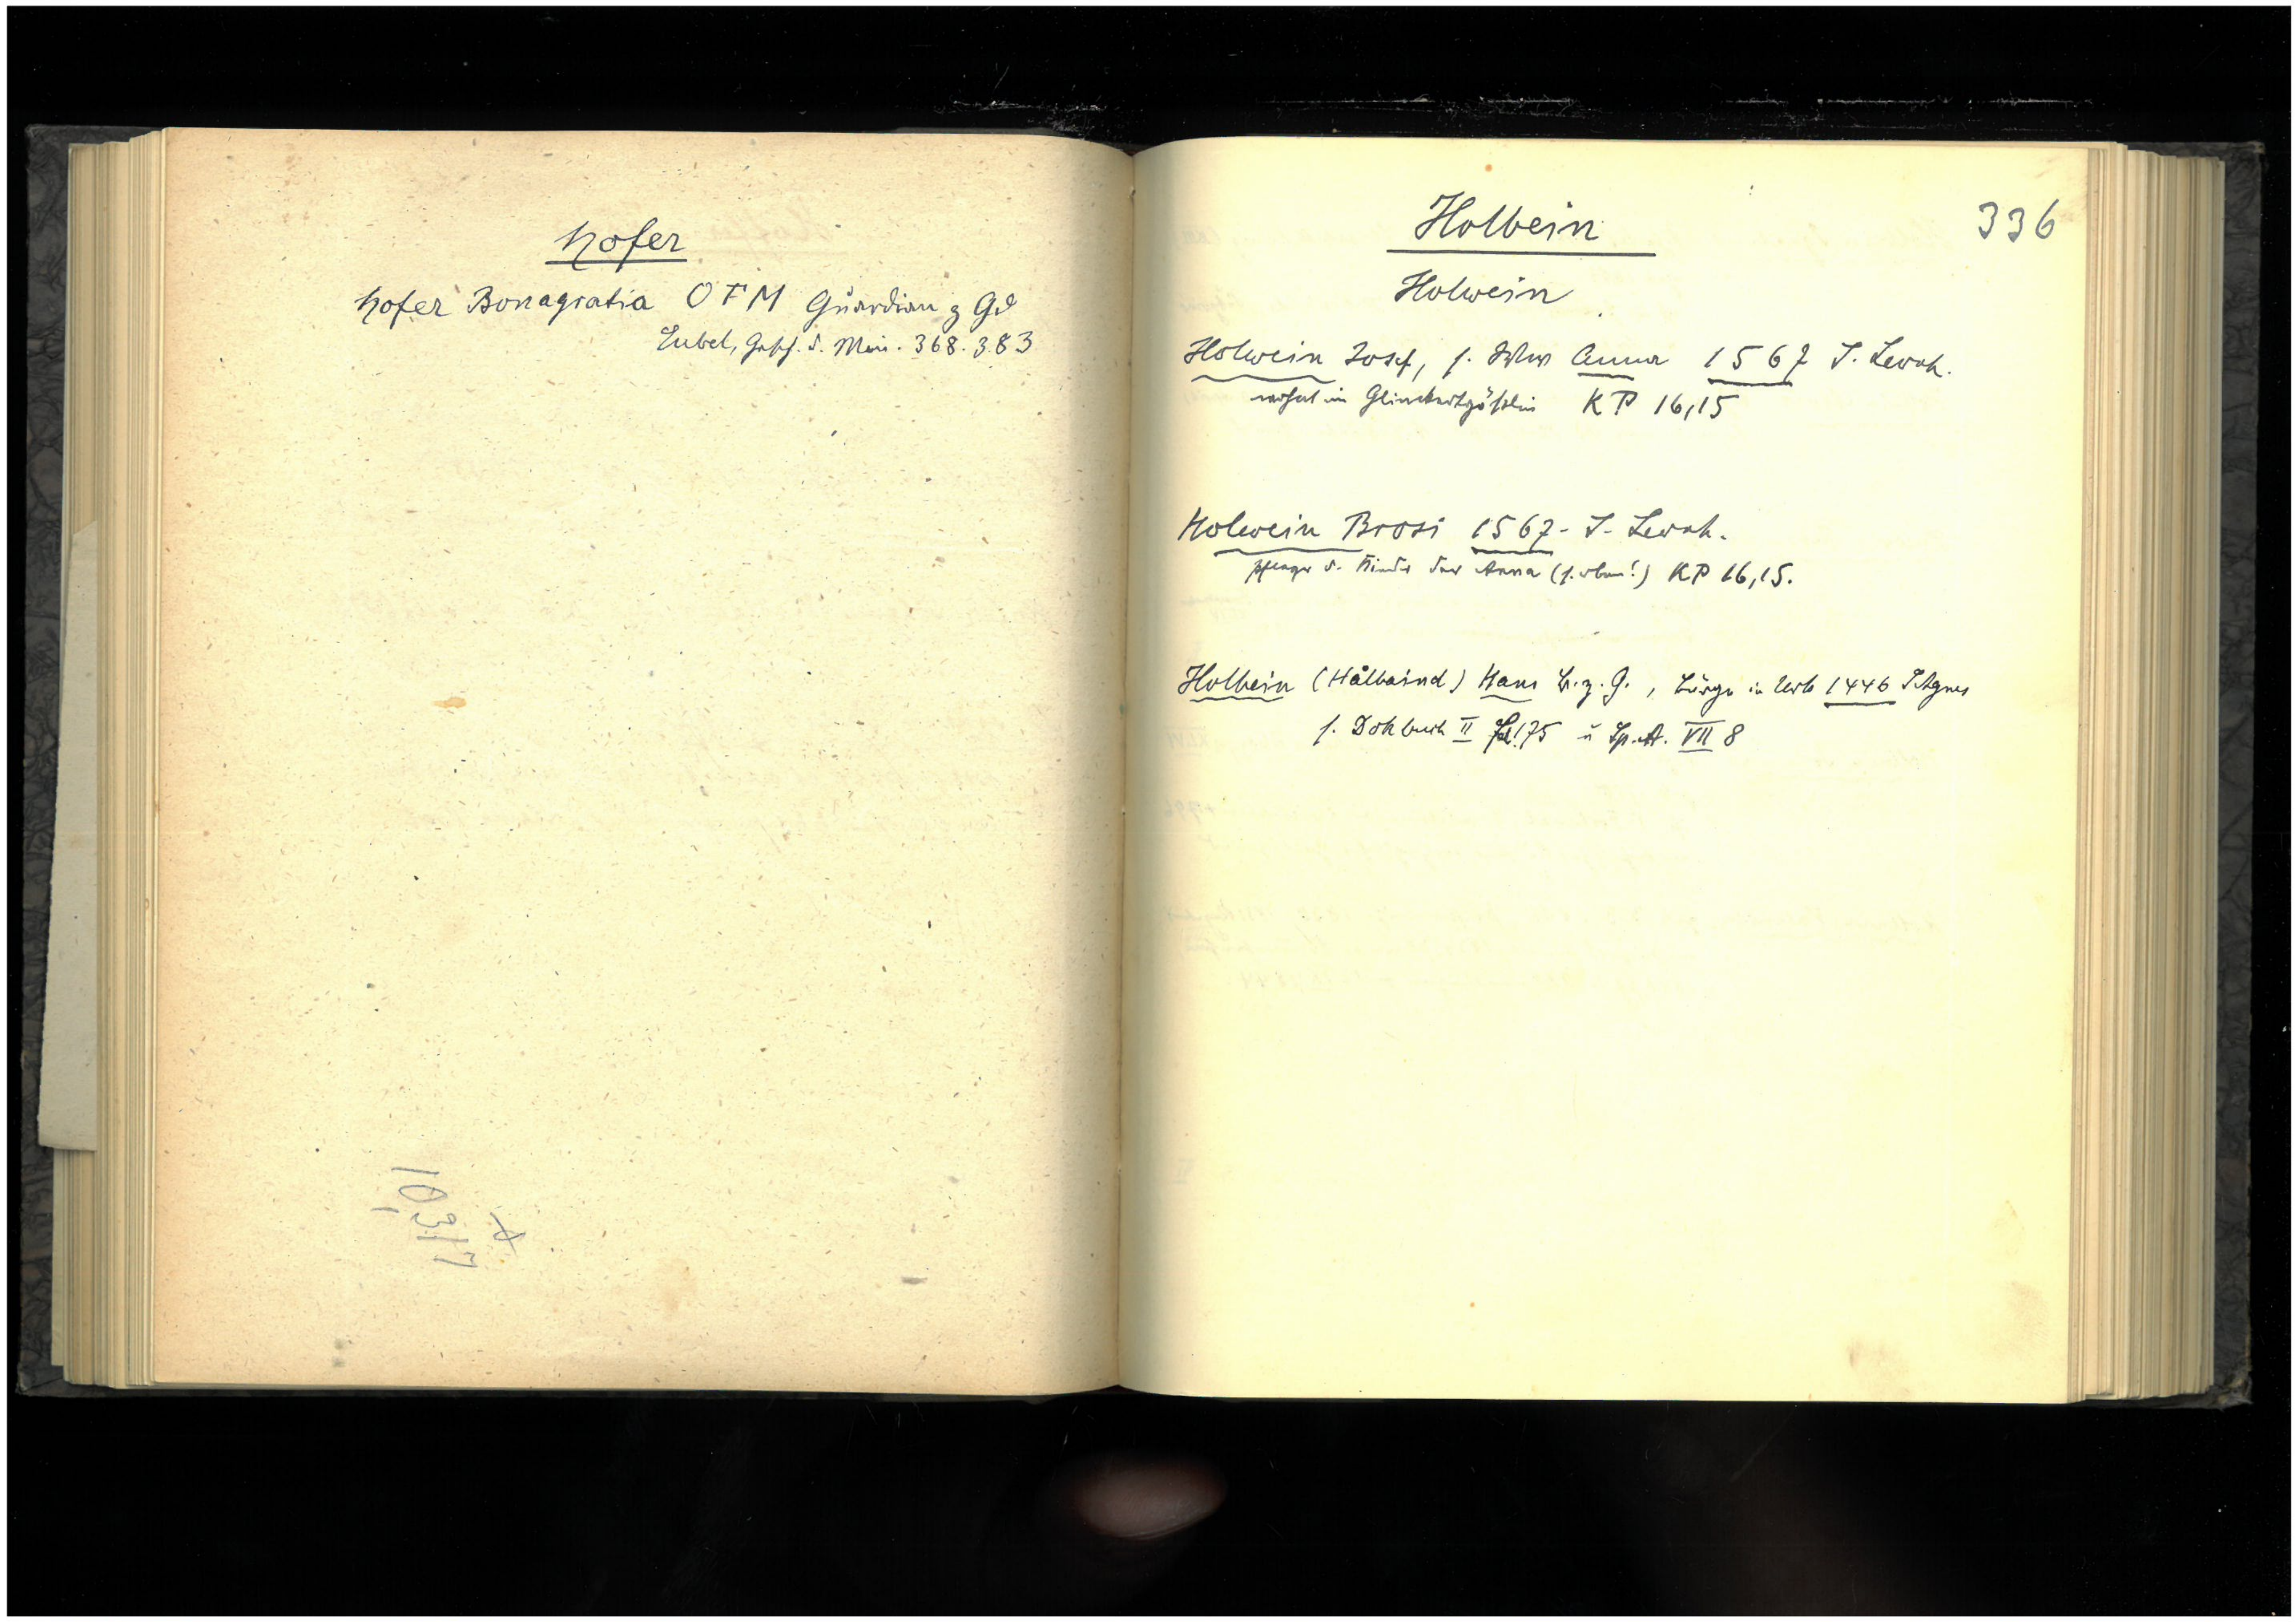 Hofer
Hofer Bonagratia OFM Guardian z Gd
Eubel, Gesch. d. Min. 368. 383
10,317
Holbein
336
Holwein
Holwein Josef, s. Wtw Anna 1567 S. Leonh.
wohnt im KP 16,15
Holwein Brosi 1567 - S. Leonh.
Pfleger d. Kinder der Anna (s. oben!) KP 16,15.
Holbein (Hålbaind) Hans B. z. G., Bürge in Urk 1446 S Agnes
s. Dok buch II 175 u Sp. A. VII 8